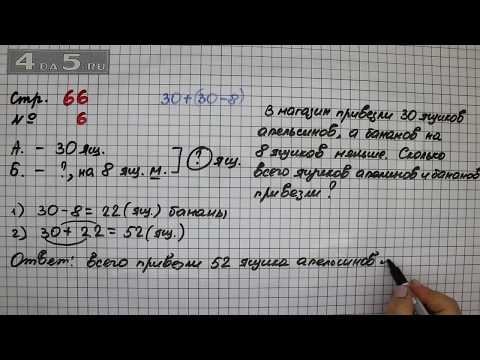 4DA5.RU
Стр. 66
№ 6
30+(30-8)
А. - 30 ящ.
Б. - ?, на 8 ящ. м. ] ? ящ.
1) 30-8=22(ящ.) бананы
2) 30+22=52(ящ.)
Ответ: всего привезли 52 ящика апельсинов и
В магазин привезли 30 ящиков
апельсинов, а бананов на
8 ящиков меньше. Сколько
всего ящиков апельсинов и бананов
привезли?